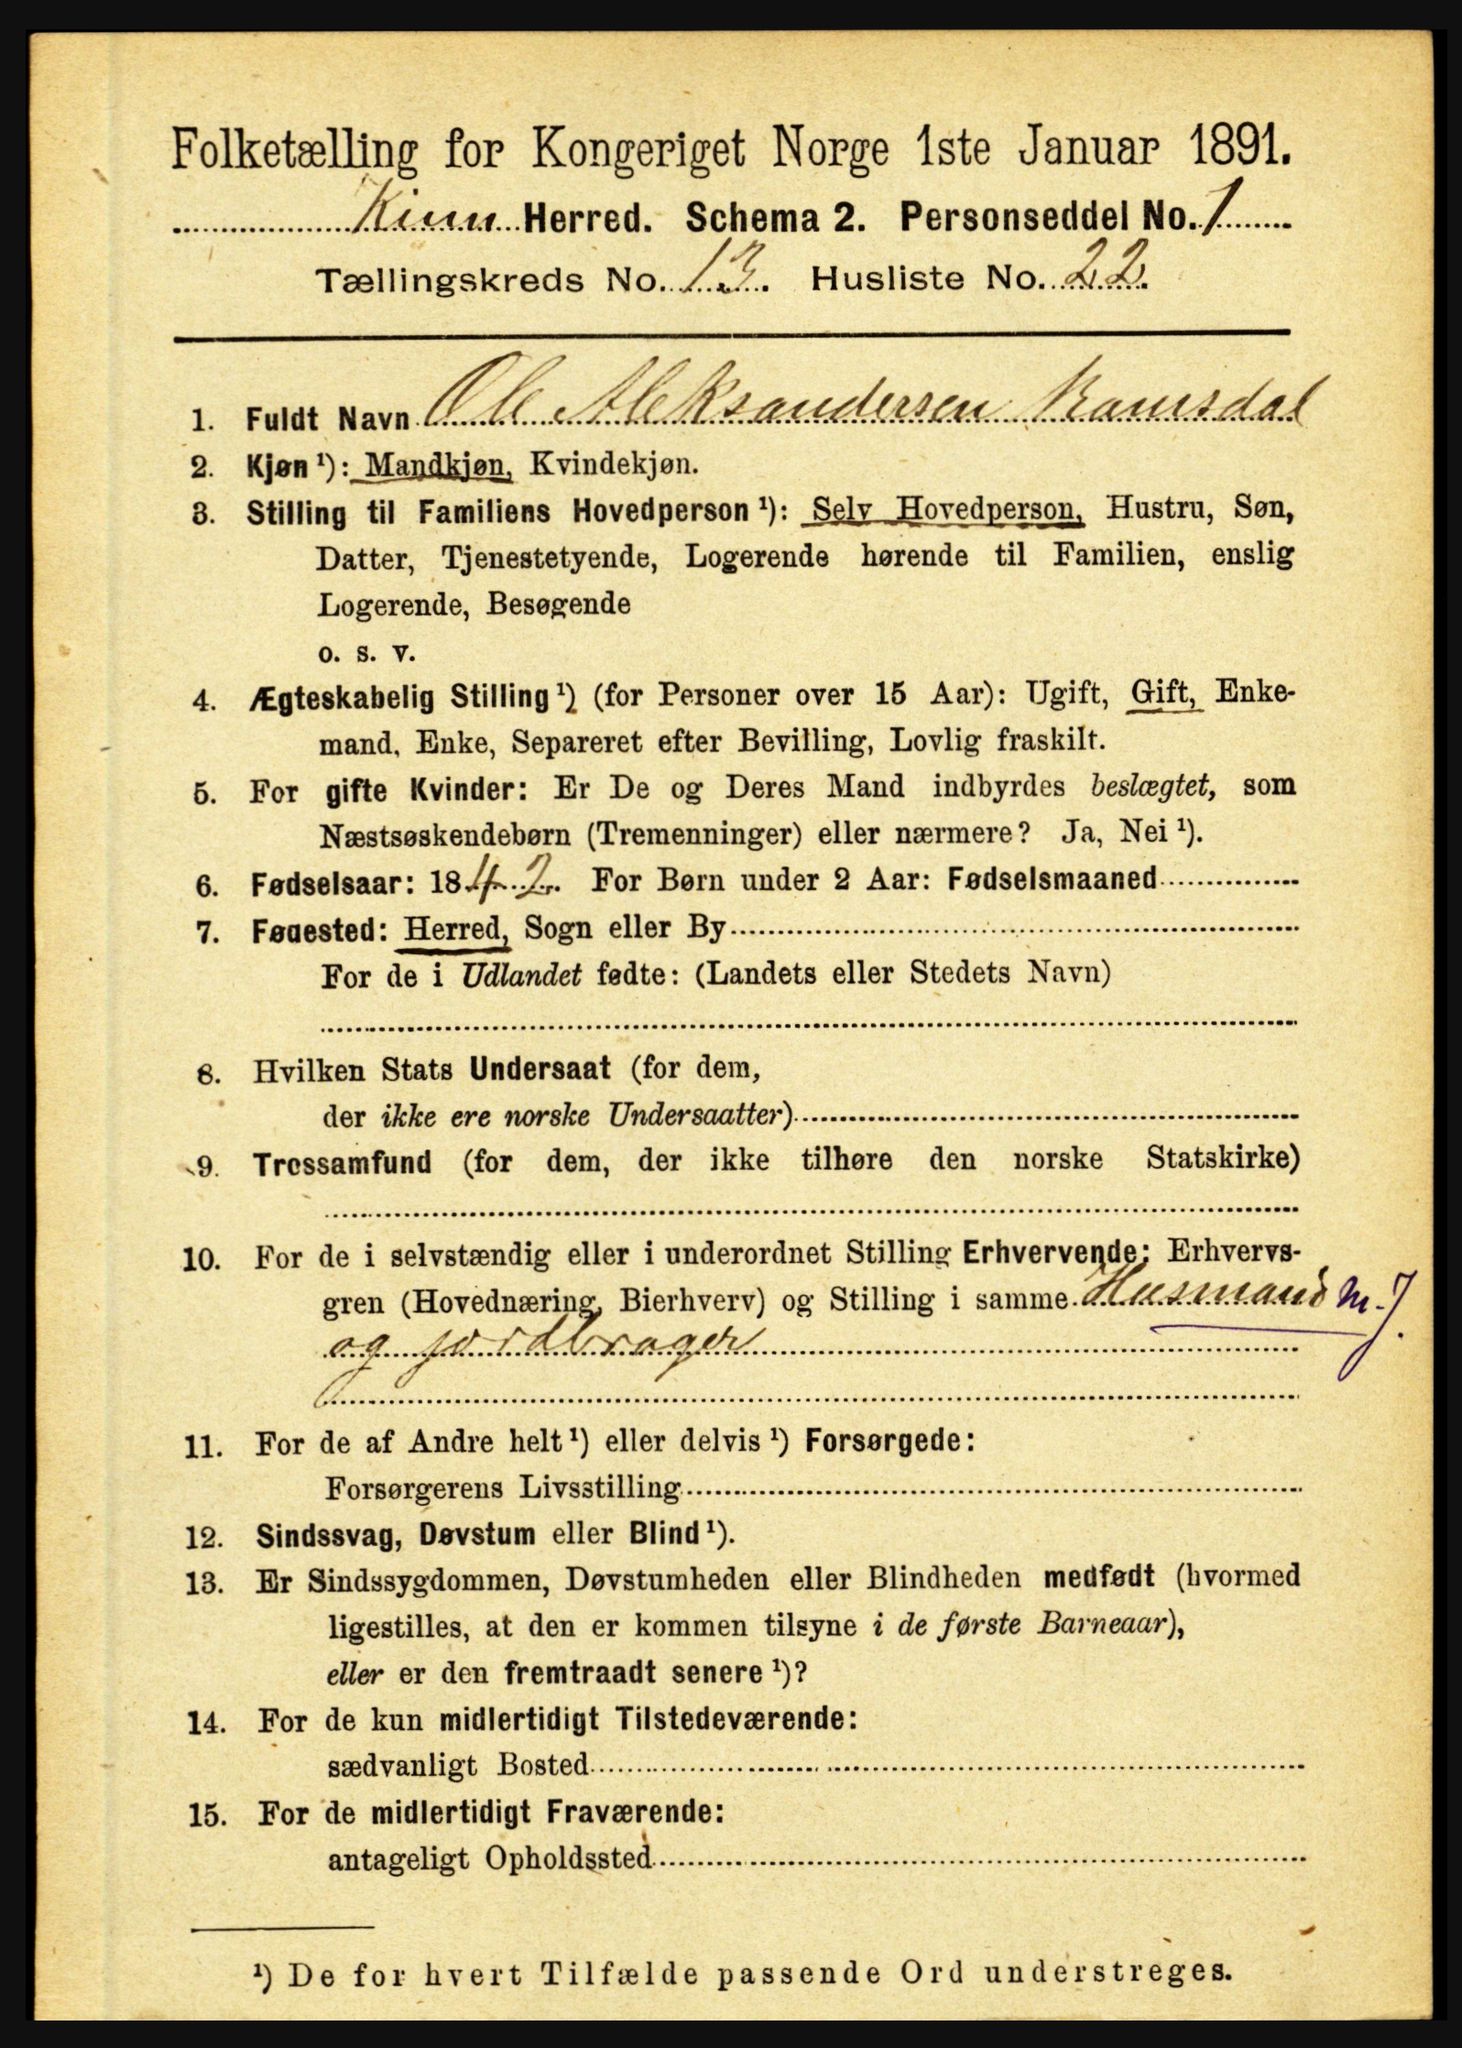 Folketælling for Kongeriget Norge 1ste Januar 1891.
Kinn Herred. Schema 2. Personseddel No. 1
Tællingskreds No. 13. Husliste No. 22.
1. Fuldt Navn Ole Aleksandersen Ramsdal
2. Kjøn ¹): Mandkjøn, Kvindekjøn.
3. Stilling til Familiens Hovedperson ¹): Selv Hovedperson, Hustru, Søn,
Datter, Tjenestetyende, Logerende hørende til Familien, enslig
Logerende, Besøgende
o. s. v.
4. Ægteskabelig Stilling ¹) (for Personer over 15 Aar): Ugift, Gift, Enke-
mand, Enke, Separeret efter Bevilling, Lovlig fraskilt.
5. For gifte Kvinder: Er De og Deres Mand indbyrdes beslægtet, som
Næstsøskendebørn (Tremenninger) eller nærmere? Ja, Nei ¹).
6. Fødselsaar: 1842. For Børn under 2 Aar: Fødselsmaaned
7. Fødested: Herred, Sogn eller By
For de i Udlandet fødte: (Landets eller Stedets Navn)
8. Hvilken Stats Undersaat (for dem,
der ikke ere norske Undersaatter)
9. Trossamfund (for dem, der ikke tilhøre den norske Statskirke)
10. For de i selvstændig eller i underordnet Stilling Erhvervende: Erhvervs-
gren (Hovednæring, Bierhverv) og Stilling i samme Husmand m. J.
og jordbruger
11. For de af Andre helt ¹) eller delvis ¹) Forsørgede:
Forsørgerens Livsstilling
12. Sindssvag, Døvstum eller Blind ¹).
13. Er Sindssygdommen, Døvstumheden eller Blindheden medfødt (hvormed
ligestilles, at den er kommen tilsyne i de første Barneaar),
eller er den fremtraadt senere ¹)?
14. For de kun midlertidigt Tilstedeværende:
sædvanligt Bosted
15. For de midlertidigt Fraværende:
antageligt Opholdssted
¹) De for hvert Tilfælde passende Ord understreges.